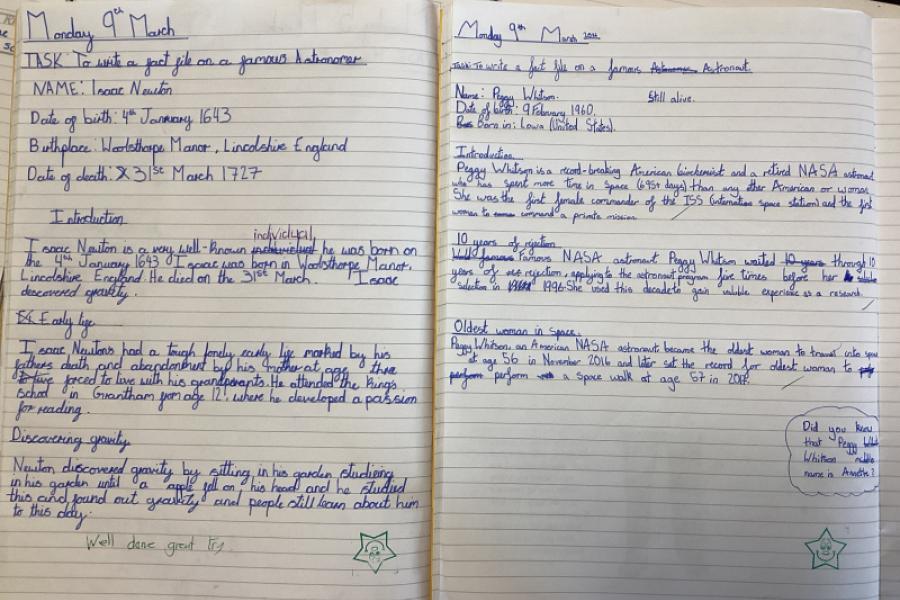 Monday 9th March
TASK: To write a fact file on a famous Astronomer
NAME: Isaac Newton
Date of birth: 4th January 1643
Birthplace: Woolsthorpe Manor, Lincolnshire England
Date of death: 31st March 1727
Introduction
individual
Isaac Newton is a very well-known he was born on
the 4th January 1643 Isaac was born in Woolsthorpe Manor,
Lincolnshire England. He died on the 31st March. Isaac
discovered gravity.
Early life
Isaac Newtons had a tough lonely early life marked by his
fathers death and abandonment by his mother at age three
forced to live with his grandparents. He attended the King's
School in Grantham from age 12, where he developed a passion
for reading.
Discovering gravity
Newton discovered gravity by sitting in his garden studieing
in his garden until a apple fell on his head and he studied
this and found out gravity and people still learn about him
to this day.
Well done great try.
Monday 9th March
Task: To write a fact file on a famous Astronaut.
Name: Peggy Whitson. Still alive.
Date of birth: 9 February 1960.
Born in: Lowa (United States).
Introduction
Peggy Whitson is a record-breaking American biochemist and a retired NASA astronaut
who has spent more time in space (695+ days) than any other American or woman.
She was the first female commander of the ISS (internation space station) and the first
woman to command a private mission.
10 years of rejection
Famous NASA astronaut Peggy Whitson waited through 10
years of rejection, applying to the astronaut program five times before her
selection in 1996. She used this decade to gain valuble experience as a research.
Oldest woman in space.
Peggy Whitson, an American NASA astronaut became the oldest woman to travel into
at age 56 in November 2016 and later set the record for oldest woman to
perform a space walk at age 57 in
Did you know
that Peggy
Whitson
name is Annette?